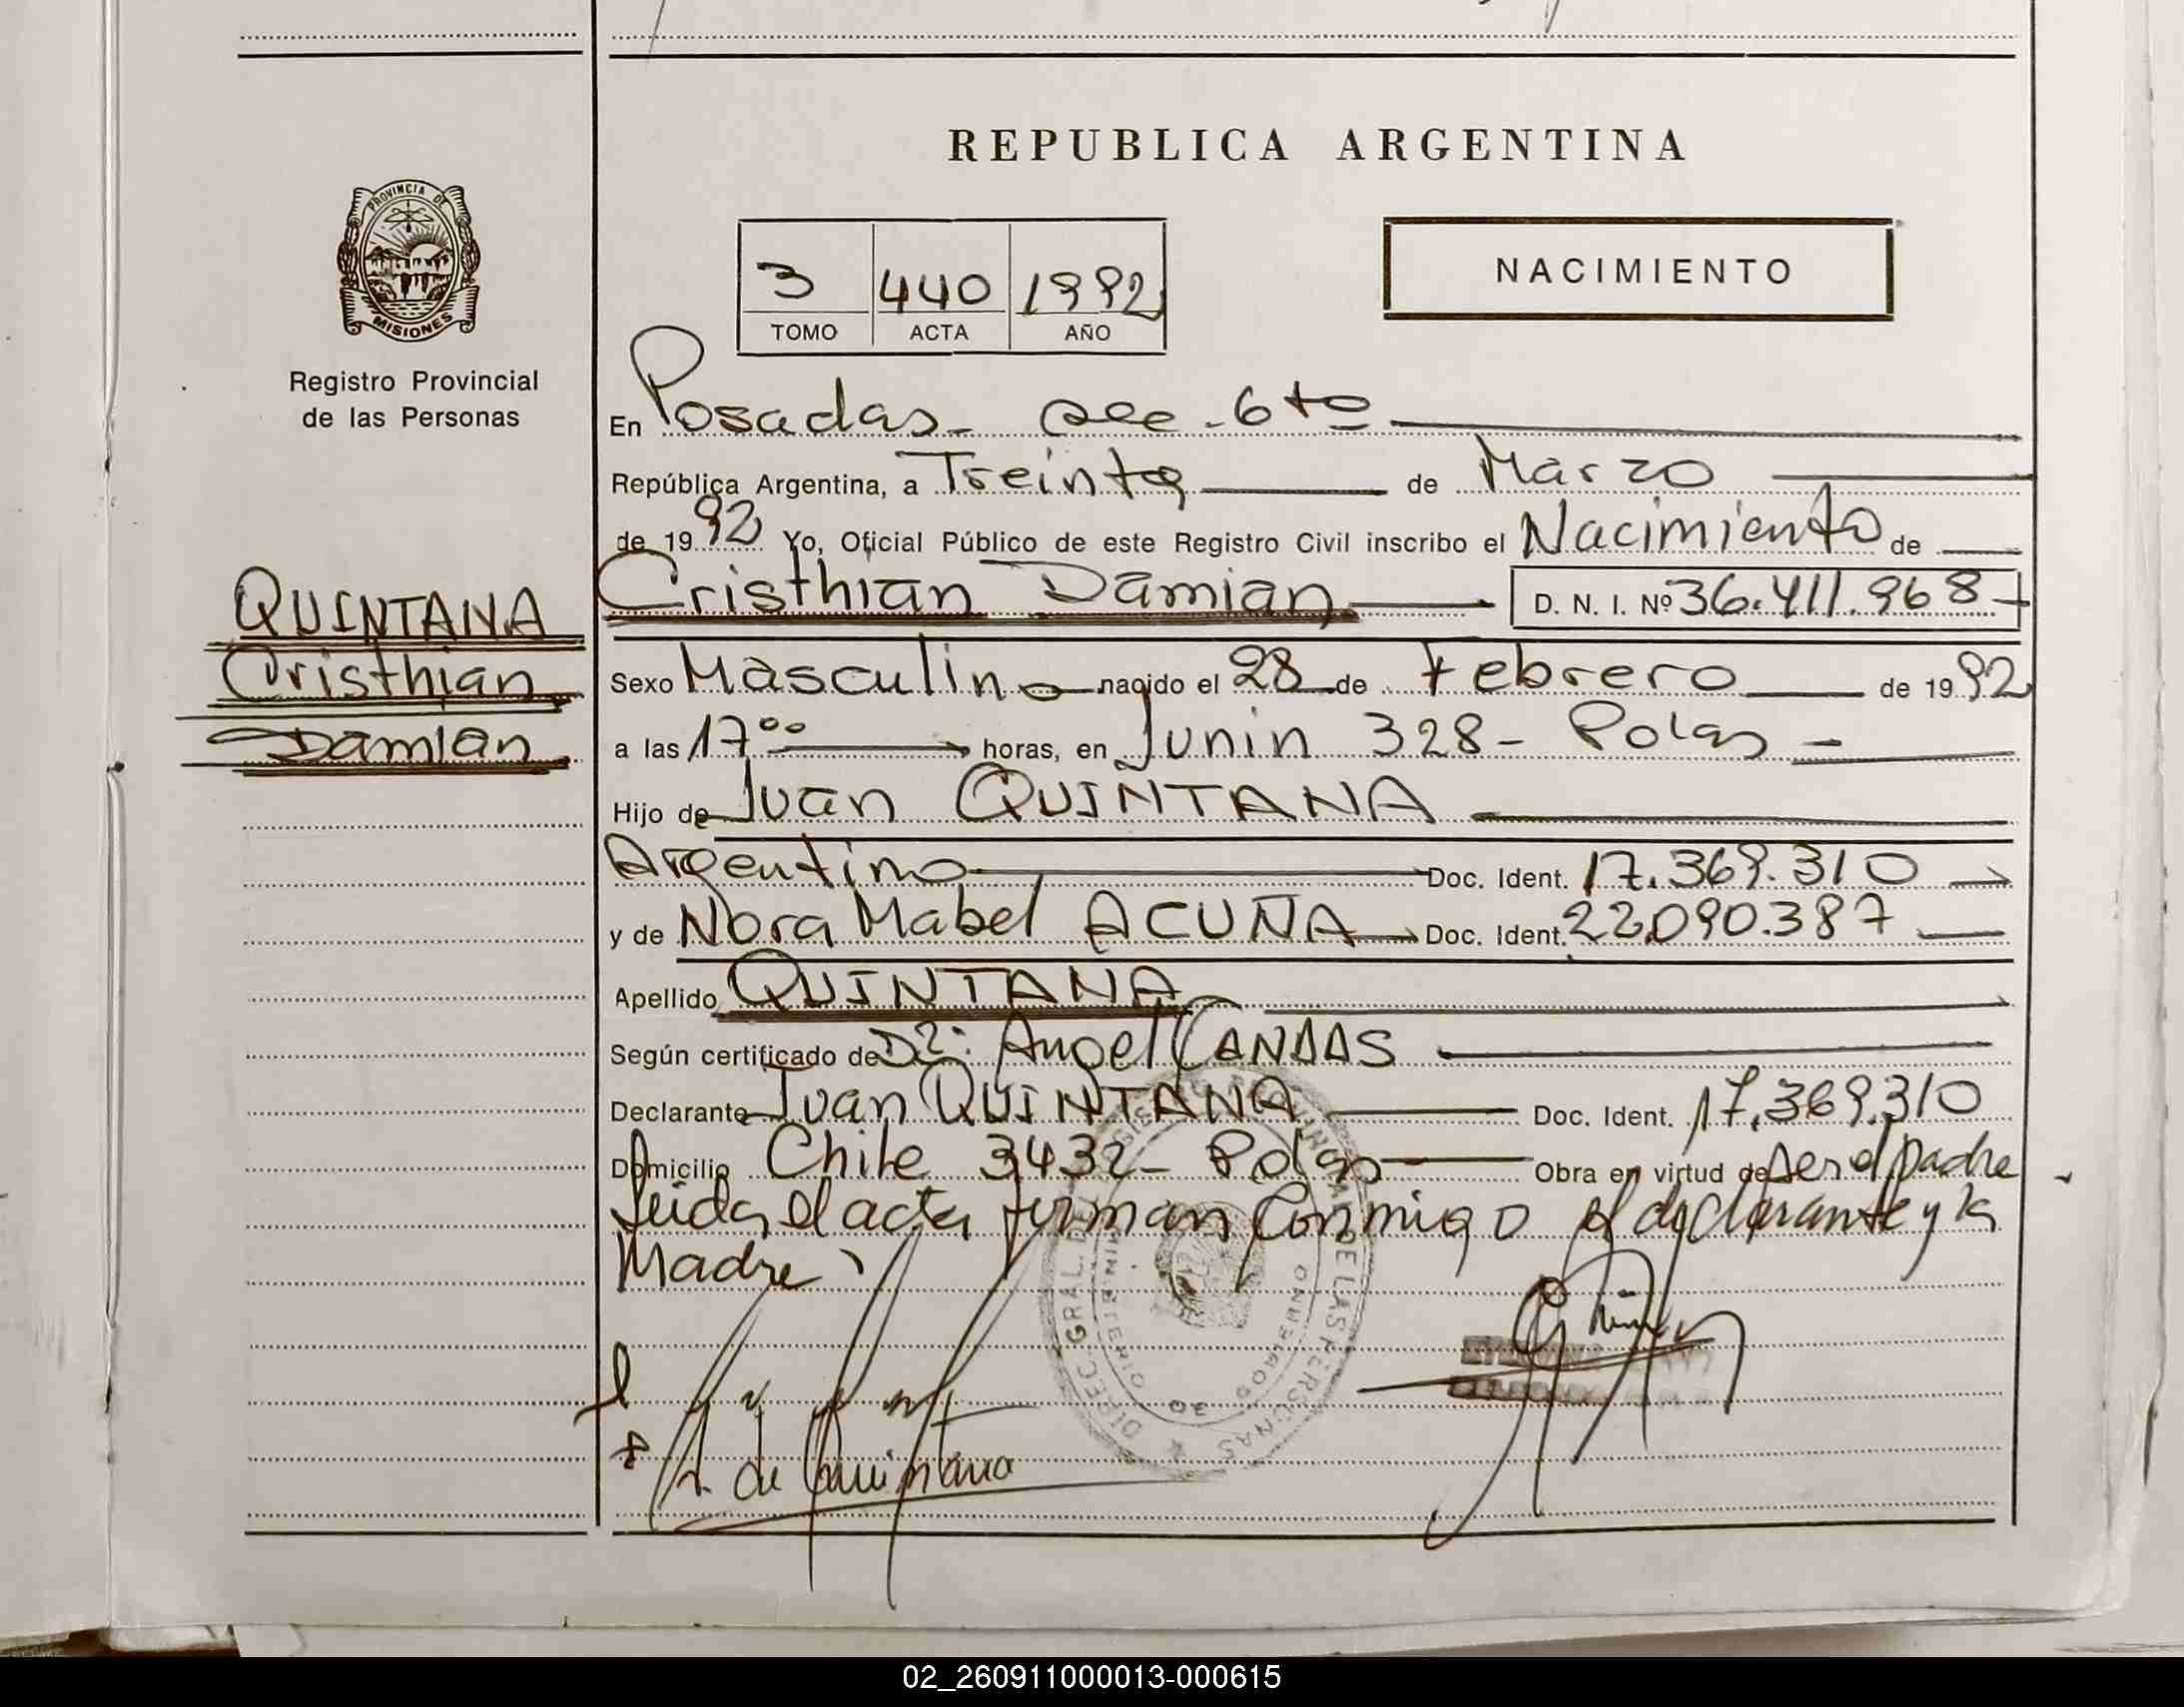 REPUBLICA ARGENTINA
PROVINCIA DE
MISIONES
Registro Provincial
de las Personas
NACIMIENTO
3 440 1992
TOMO ACTA AÑO
En Posadas - sec. 6ta
República Argentina, a Treinta de Marzo
de 1992 Yo, Oficial Público de este Registro Civil inscribo el Nacimiento de
Cristhian Damian D. N. I. Nº 36.411.968
QUINTANA
Cristhian
Damian
Sexo Masculino nacido el 28 de Febrero de 1992
a las 17⁰⁰ horas, en Junin 328 - Pdas -
Hijo de Juan QUINTANA
Argentino Doc. Ident. 17.369.310
y de Nora Mabel ACUÑA Doc. Ident. 22.090.387
Apellido QUINTANA
Según certificado de Dr. Angel CANDAS
Declarante Juan QUINTANA Doc. Ident. 17.369.310
Domicilio Chile 3432 - Pdas Obra en virtud de ser el padre
Leida el acta firman conmigo el declarante y la
Madre
DIREC. GRAL. DE LAS PERSONAS
MINISTERIO DE GOBIERNO
A. de Quintana
02_260911000013-000615